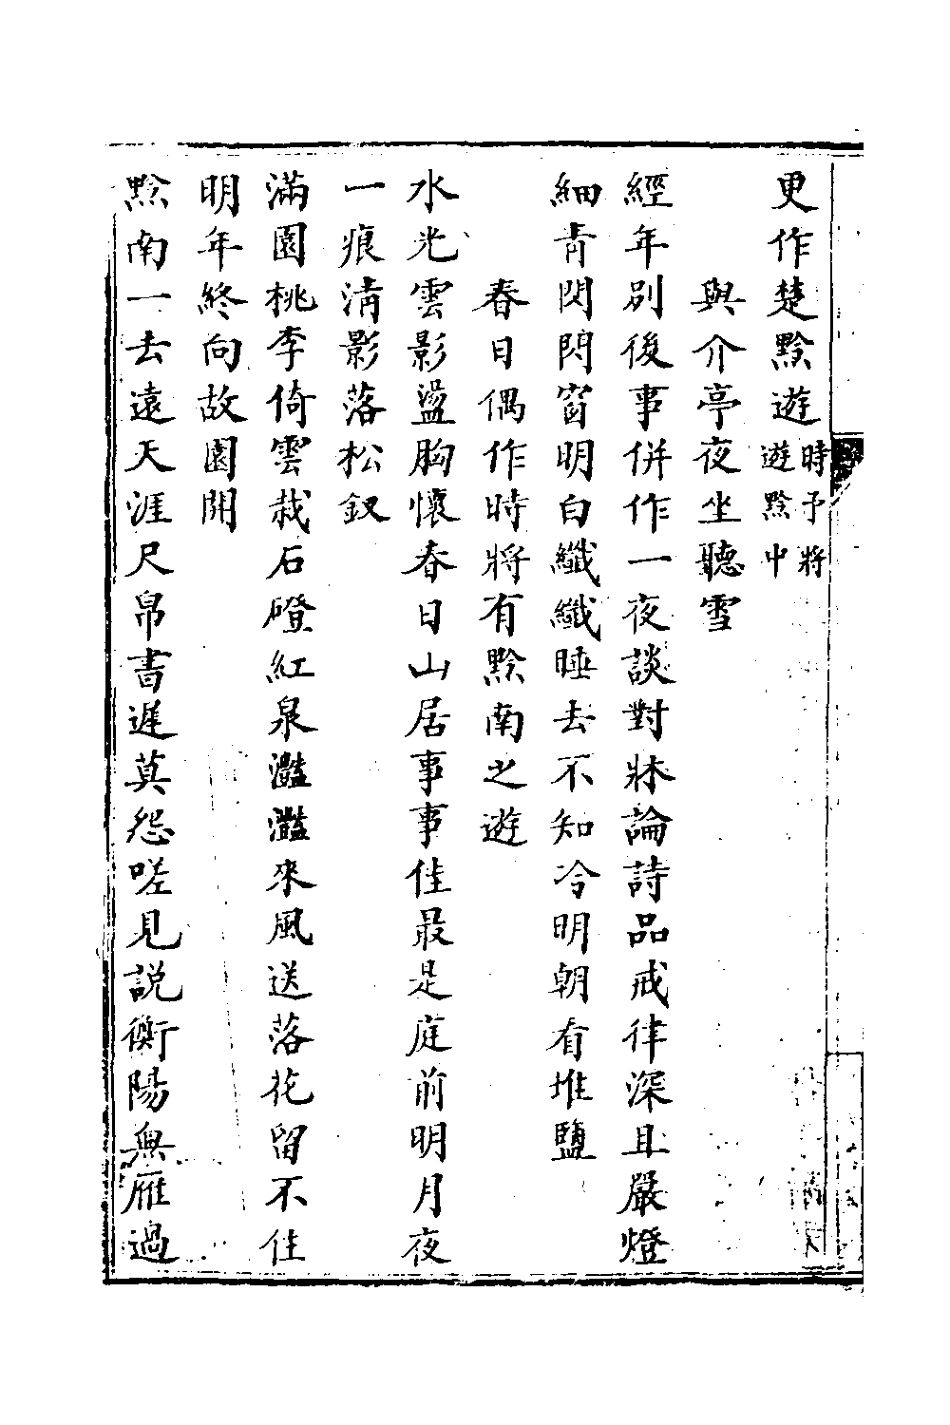 更作楚黔遊時予將遊黔中
與介亭夜坐聽雪
經年別後事併作一夜談對牀論詩品戒律深且嚴燈
細青閃閃窗明白纖纖睡去不知冷明朝看堆鹽
春日偶作時將有黔南之遊
水光雲影盪胸懷春日山居事事佳最是庭前明月夜
一痕清影落松釵
滿園桃李倚雲栽石磴紅泉灩灩來風送落花留不住
明年終向故園開
黔南一去遠天涯尺帛書遲莫怨嗟見説衡陽無雁過